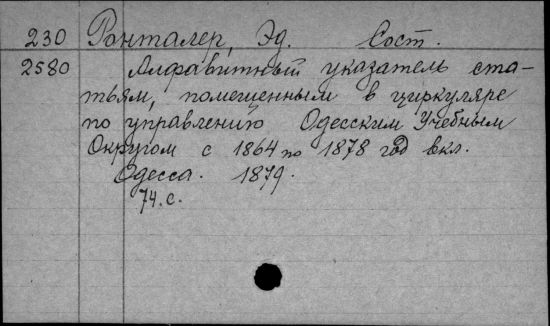 230 Ронталер, Эд. Сост.
2580 Алфавитный указатель ста-
тьям, помещенным в циркуляре
по управлению Одесским Учебным
Округом с 1864 по 1878 год вкл.
Одесса. 1879.
74. с.